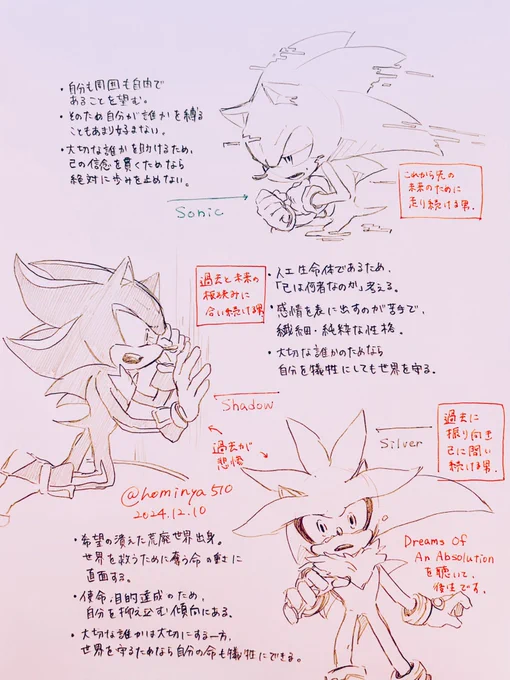 ・自分も周囲も自由で
あることを望む。
・そのため自分が誰かを縛る
こともあまり好まない。
・大切な誰かを助けるため、
己の信念を貫くためなら
絶対に歩みを止めない。
Sonic
これから先の
未来のために
走り続ける男。
過去と未来の
板挟みに
合い続ける男
・人工生命体であるため、
「己は何者なのか」考える。
・感情を表に出すのが苦手で、
繊細・純粋な性格。
・大切な誰かのためなら
自分を犠牲にしても世界を守る。
Shadow
過去が
悲惨
Silver
過去に
振り向き
己に問い
続ける男.
@hominya510
2024.12.10
・希望の潰えた荒廃世界出身。
世界を救うために奪う命の重さに
直面する。
・使命・目的達成のため、
自分を抑え込む傾向にある。
・大切な誰かは大切にする一方、
世界を守るためなら自分の命も犠牲にできる。
Dreams Of
An Absolution
を聴いて、
です。